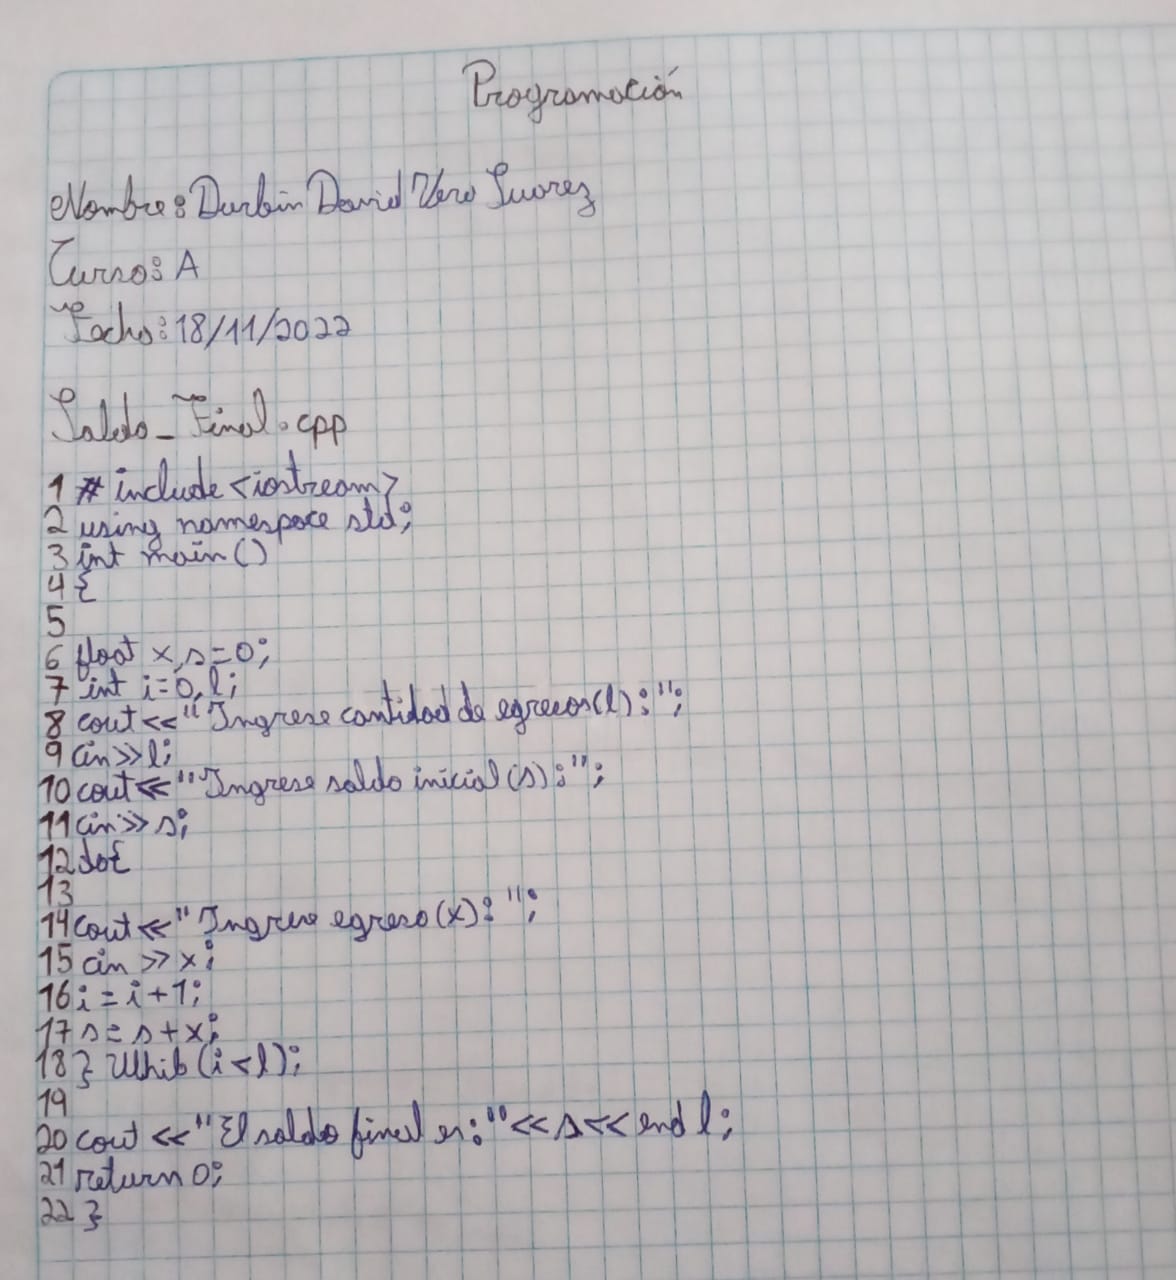 Programación
Nombre: Durbin David Vera Suarez
Curso: A
Fecha: 18/11/2022
Saldo_Final.cpp
1 # include <iostream>
2 using namespace std;
3 int main()
4 {
5
6 float x,s=0;
7 int i=0,l;
8 cout<<"Ingrese cantidad de egresos(l):";
9 cin>>l;
10 cout<<"Ingrese saldo inicial(s):";
11 cin>>s;
12 do{
13
14 cout<<"Ingrese egreso(x): ";
15 cin >> x;
16 i=i+1;
17 s=s+x;
18 } While(i<l);
19
20 cout <<"El saldo final es:"<<s<<end l;
21 return 0;
22 }